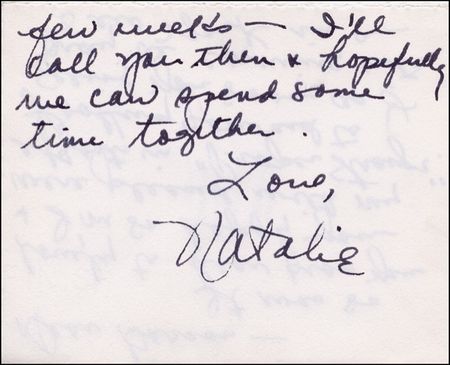 few weeks — I'll
call you then & hopefully
we can spend some
time together.
Love,
Natalie